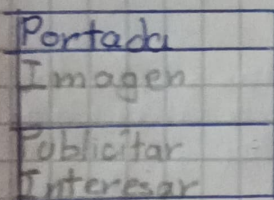 Portada
Imagen
Publicitar
Interesar